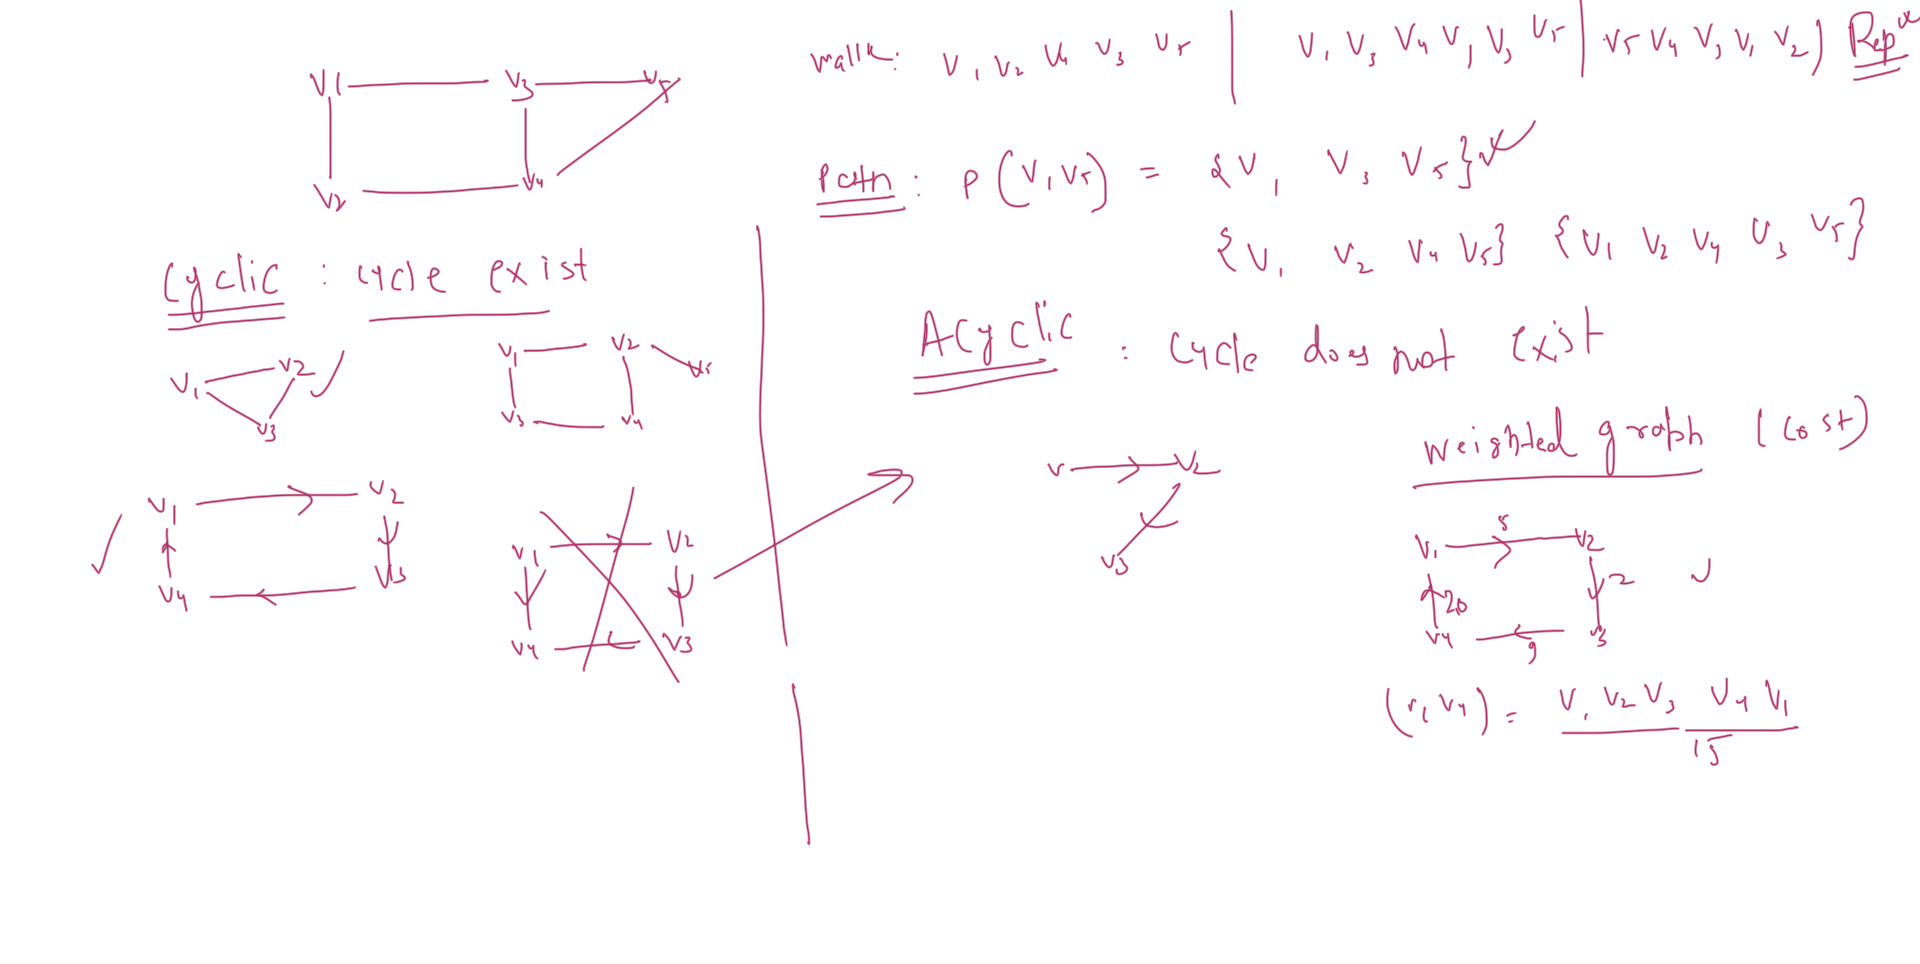 V1 V3 V5
V2 V4
walk: V1 V2 V4 V3 V5 | V1 V3 V4 V1 V3 V5 | V5 V4 V3 V1 V2) Rep
Path: P(V1V5) = {V1 V3 V5}
{V1 V2 V4 V5} {V1 V2 V4 V3 V5}
Cyclic : cycle exist
V1 V2
V3
V1 V2 V5
V3 V4
V1 V2
V4 V3
V1 V2
V4 V3
Acyclic : Cycle does not Exist
V V2
V3
weighted graph (Cost)
V1 5 V2
20 2
V4 9 V3
(V1 V4) = V1 V2 V3 V4 V1
15